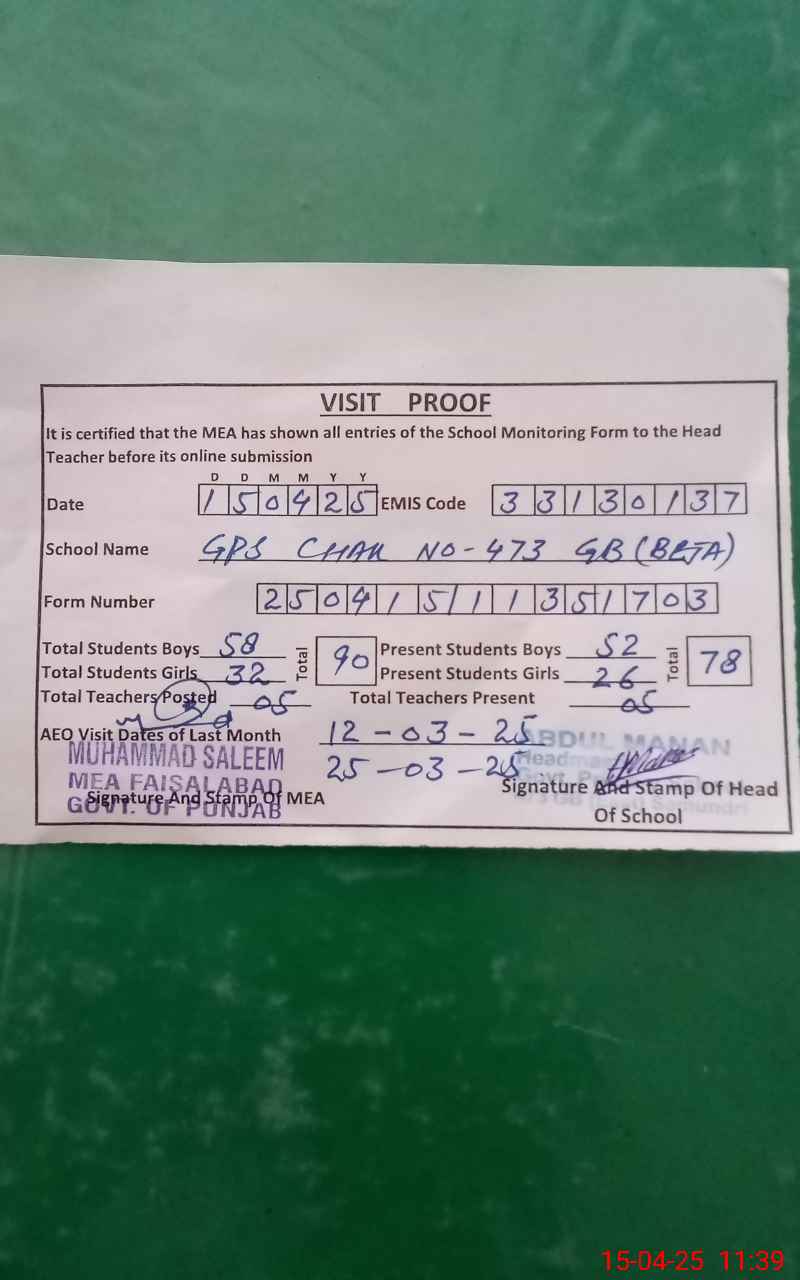 VISIT PROOF
It is certified that the MEA has shown all entries of the School Monitoring Form to the Head
Teacher before its online submission
D D M M Y Y
Date 150425 EMIS Code 33130137
School Name GPS CHAK NO-473 GB
Form Number 250415111351703
Total Students Boys 58 Total 90 Present Students Boys 52 Total 78
Total Students Girls 32 Present Students Girls 26
Total Teachers Posted 05 Total Teachers Present 05
AEO Visit Dates of Last Month 12-03-25
25-03-25
MUHAMMAD SALEEM
MEA FAISALABAD
GOVT. OF PUNJAB
Signature And Stamp Of MEA
ABDUL MANAN
Signature And Stamp Of Head
Of School
15-04-25 11:39